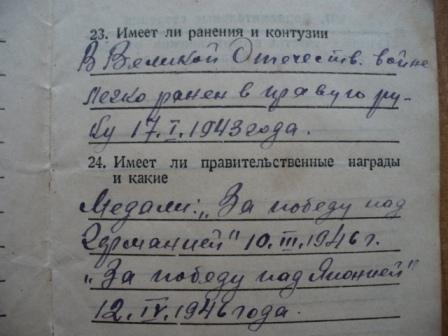 23. Имеет ли ранения и контузии
В Великой Отечеств. войне
легко ранен в правую ру-
ку 17.I.1943 года.
24. Имеет ли правительственные награды
и какие
Медали: „За победу над
Германией" 10.III.1946 г.
„За победу над Японией"
12.IV.1946 года.